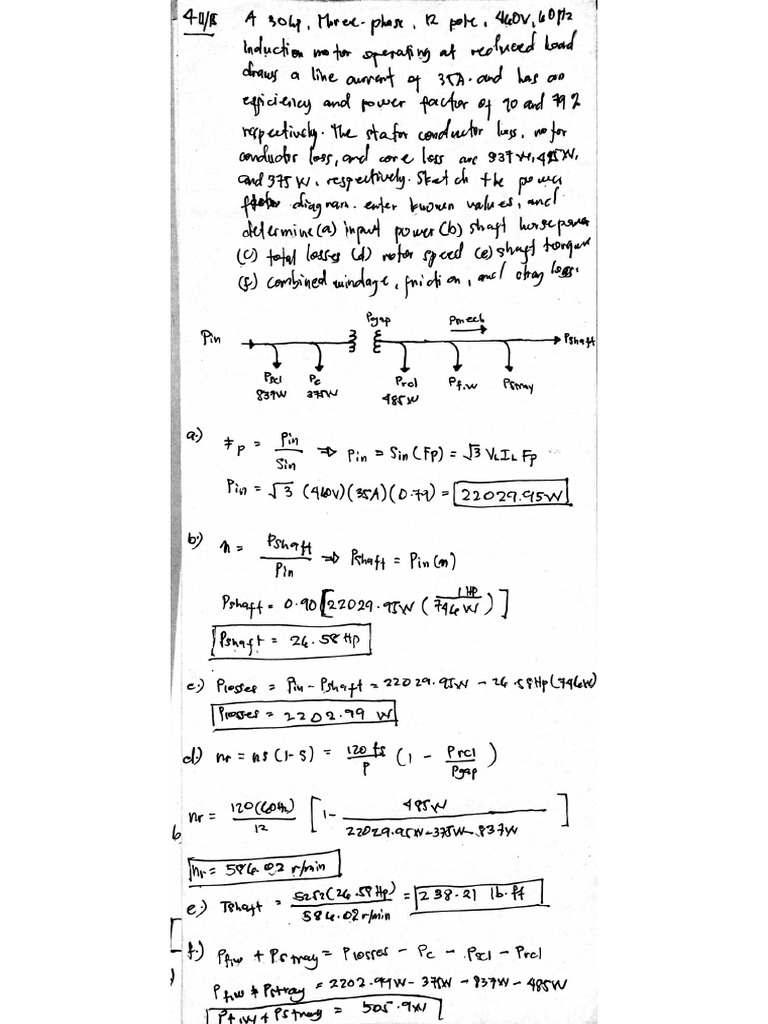 4-11/8
A 30hp, three-phase, 12 pole, 460V, 60Hz
induction motor operating at reduced load
draws a line current of 35A. and has an
efficiency and power factor of 90 and 79%
respectively. The stator conductor loss, rotor
conductor loss, and core loss are 837W, 485W,
and 375W, respectively. Sketch the power
diagram. enter known values, and
determine (a) input power (b) shaft horsepower
(c) total losses (d) rotor speed (e) shaft torque
(f) combined windage, friction, and stray loss.
Pgap Pmech
Pin Pshaft
Pscl Pc Prcl Pf,w Pstray
837W 375W 485W
a.) Fp = Pin / Sin ⇒ Pin = Sin (Fp) = √3 VL IL Fp
Pin = √3 (460V)(35A)(0.79) = 22029.95W
b.) n = Pshaft / Pin ⇒ Pshaft = Pin(n)
Pshaft = 0.90 [22029.95W (1HP / 746W)]
Pshaft = 26.58 Hp
c.) Plosses = Pin - Pshaft = 22029.95W - 26.58Hp(746W)
Plosses = 2202.99 W
d.) nr = ns (1-s) = 120 fs / P (1 - Prcl / Pgap)
nr = 120(60Hz) / 12 [1 - 485W / 22029.95W-375W-837W]
nr = 586.02 r/min
e.) Tshaft = 5252(26.58Hp) / 586.02r/min = 238.21 lb.ft
f.) Pfiw + Pstray = Plosses - Pc - Pscl - Prcl
Pfiw + Pstray = 2202.99W - 375W - 837W - 485W
Pfiw + Pstray = 505.9W